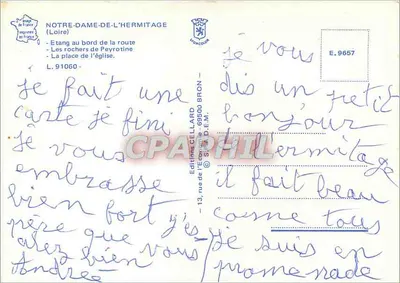 NOTRE-DAME-DE-L'HERMITAGE
(Loire)
- Etang au bord de la route
- Les rochers de Peyrotine
- La place de l'église.
L. 91060 -
E. 9657
je vous
dis un petit
bonjour
de l'ermitage
il fait beau
come tous
je suis en
promenade
je fait une
carte je fini
je vous
embrasse
bien fort j'es
père que vous
avez bien
Andrée
Editions CELLARD
- 13, rue de l'Ecole - 69500 BRON -
CPARPHIL